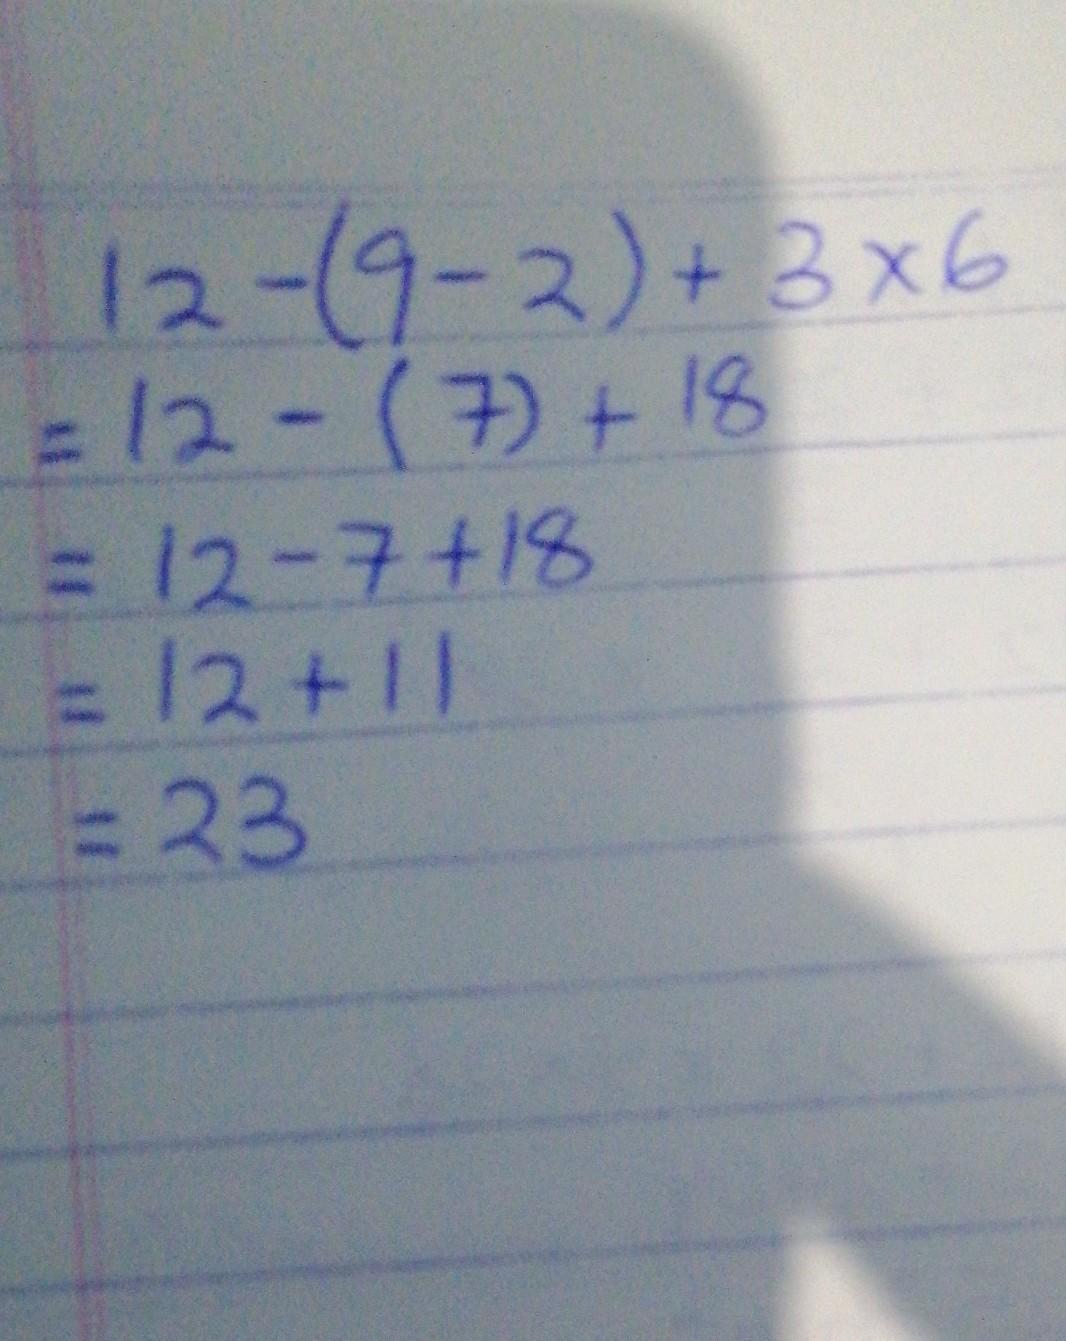 12 - (9 - 2) + 3 × 6
= 12 - (7) + 18
= 12 - 7 + 18
= 12 + 11
= 23